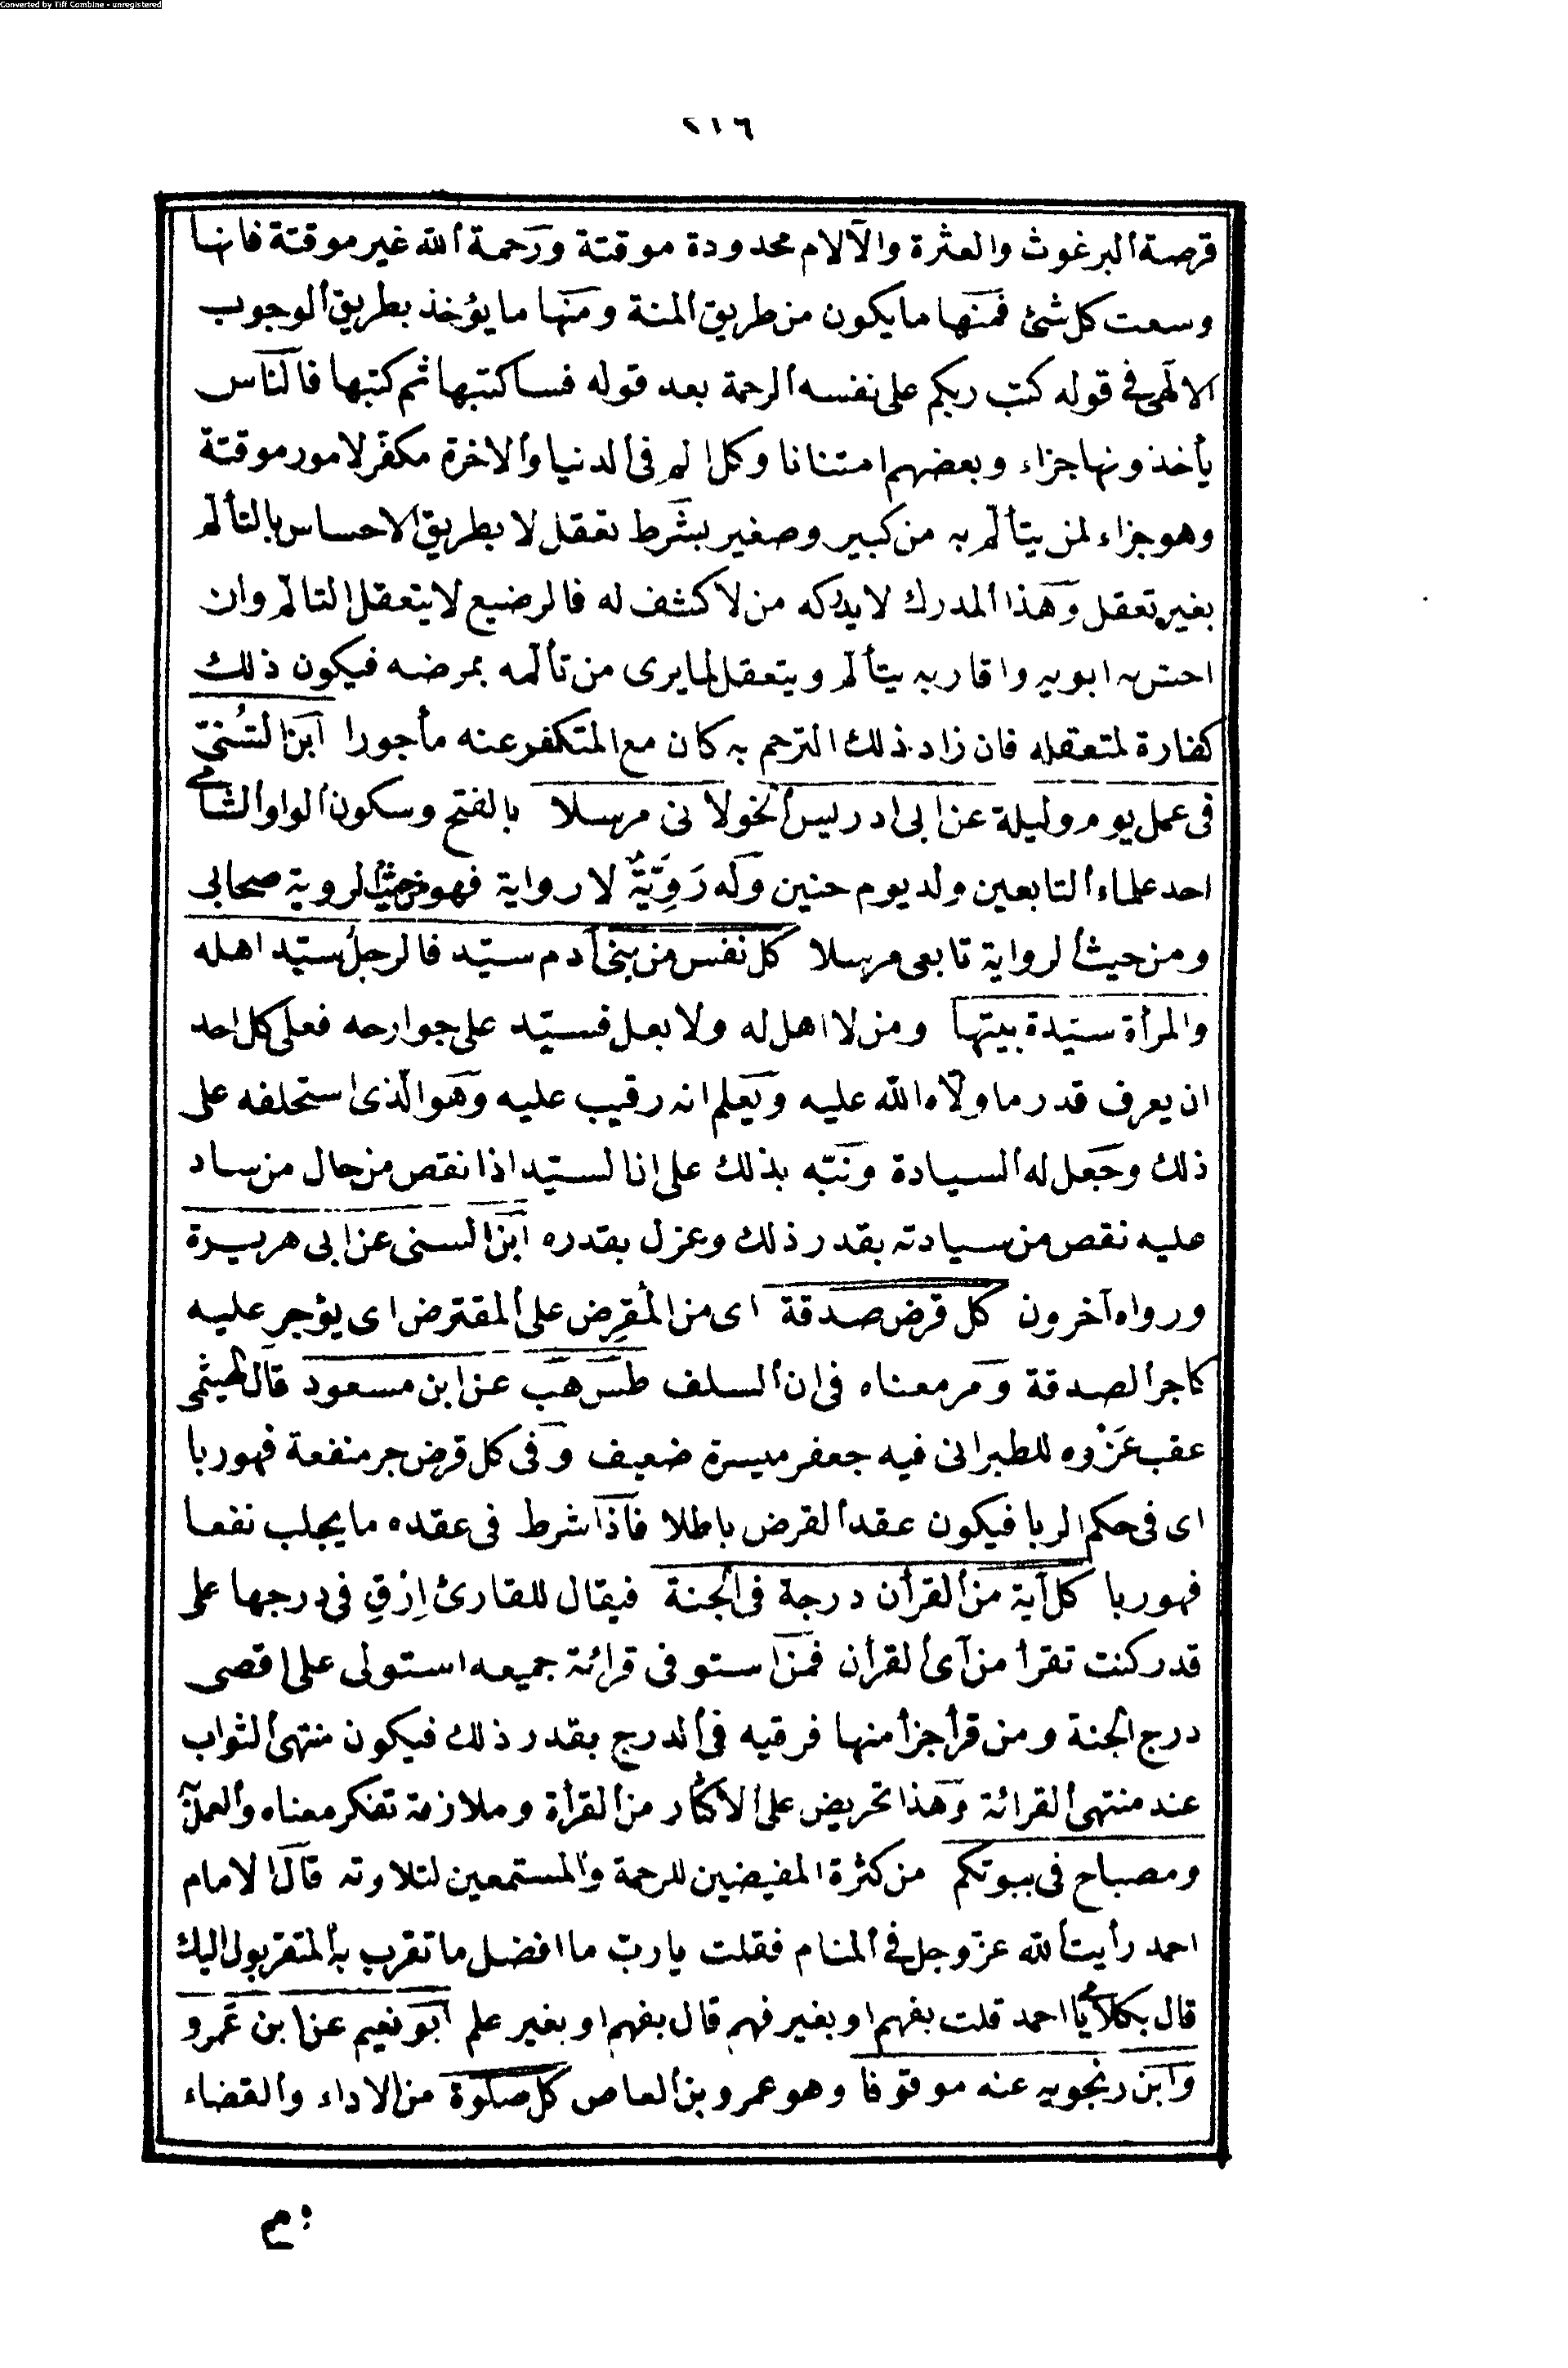 Converted by Tiff Combine - unregistered
٢١٦
قرصة البرغوث والعثرة والآلام محدودة موقتة ورحمة الله غير موقتة فانها
وسعت كل شئ فمنها ما يكون من طريق المنة ومنها ما يؤخذ بطريق الوجوب
الالهى فى قوله كتب ربكم على نفسه الرحمة بعد قوله فسا كتبها ثم كتبها فالناس
يأخذونها جزاء وبعضهم امتنانا وكل الم فى الدنيا والاخرة مكفر لامور موقتة
وهو جزاء لمن يتألم به من كبير وصغير بشرط تعقل لا بطريق الاحساس بالتألم
بغير تعقل وهذا المدرك لا يدركه من لا كشف له فالرضيع لا يتعقل التالم وان
احتس به ابويه واقاربه يتألم ويتعقل لما يرى من تألمه بمرضه فيكون ذلك
كفارة لمتعقله فان زاد ذلك الترحم به كان مع المتكفر عنه مأجورا ابن السُنىّ
فى عمل يوم وليلة عن ابى ادريس الخولانى مرسلا بالفتح وسكون الواو الشامى
احد علماء التابعين ولد يوم حنين وله رَوِيَّةٌ لا رواية فهو من حيث الروية صحابى
ومن حيث الرواية تابعى مرسلا كل نفس من بنى أدم سيّد فالرجل سيّد اهله
والمرأة سيّدة بيتها ومن لا اهل له ولا بعل فسيّد على جوارحه فعلى كل احد
ان يعرف قدر ما ولّاه الله عليه ويعلم انه رقيب عليه وهو الّذى استخلفه على
ذلك وجعل له السيادة ونبّه بذلك على ان السيّد اذا نقص من حال من ساد
عليه نقص من سيادته بقدر ذلك وعزل بقدره ابن السنى عن ابى هريرة
ورواه آخرون كل قرض صدقة اى من المُقرِض على المقترض اى يؤجر عليه
كاجر الصدقة ومر معناه فى ان السلف طس هب عن ابن مسعود قال الهيثمى
عقب عَزْوه للطبرانى فيه جعفر ميسرة ضعيف وفى كل قرض جر منفعة فهو ربا
اى فى حكم الربا فيكون عقد القرض باطلا فاذا شرط فى عقده ما يجلب نفعا
فهو ربا كل آية من القرأن درجة فى الجنة فيقال للقارئ اِرْقِ فى درجها على
قدر كنت تقرأ من آى القرأن فمن استوفى قرائة جميعه استولى على اقصى
درج الجنة ومن قرأ جزأ منها فرقيه فى الدرج بقدر ذلك فيكون منتهى الثواب
عند منتهى القرائة وهذا تحريض على الاكثار من القرأة وملازمة تفكر معناه والعمل به
ومصباح فى بيوتكم من كثرة المفيضين للرحمة والمستمعين لتلاوته قال الامام
احمد رأيت الله عزّ وجل فى المنام فقلت يا ربّ ما افضل ما تقرب به المتقربون اليك
قال بكلامى يا احمد قلت بفهم او بغير فهم قال بفهم او بغير علم ابو نعيم عن ابن عَمرو
وابن زنجويه عنه موقوفا وهو عمرو بن العاص كل صلوة من الاداء والقضاء